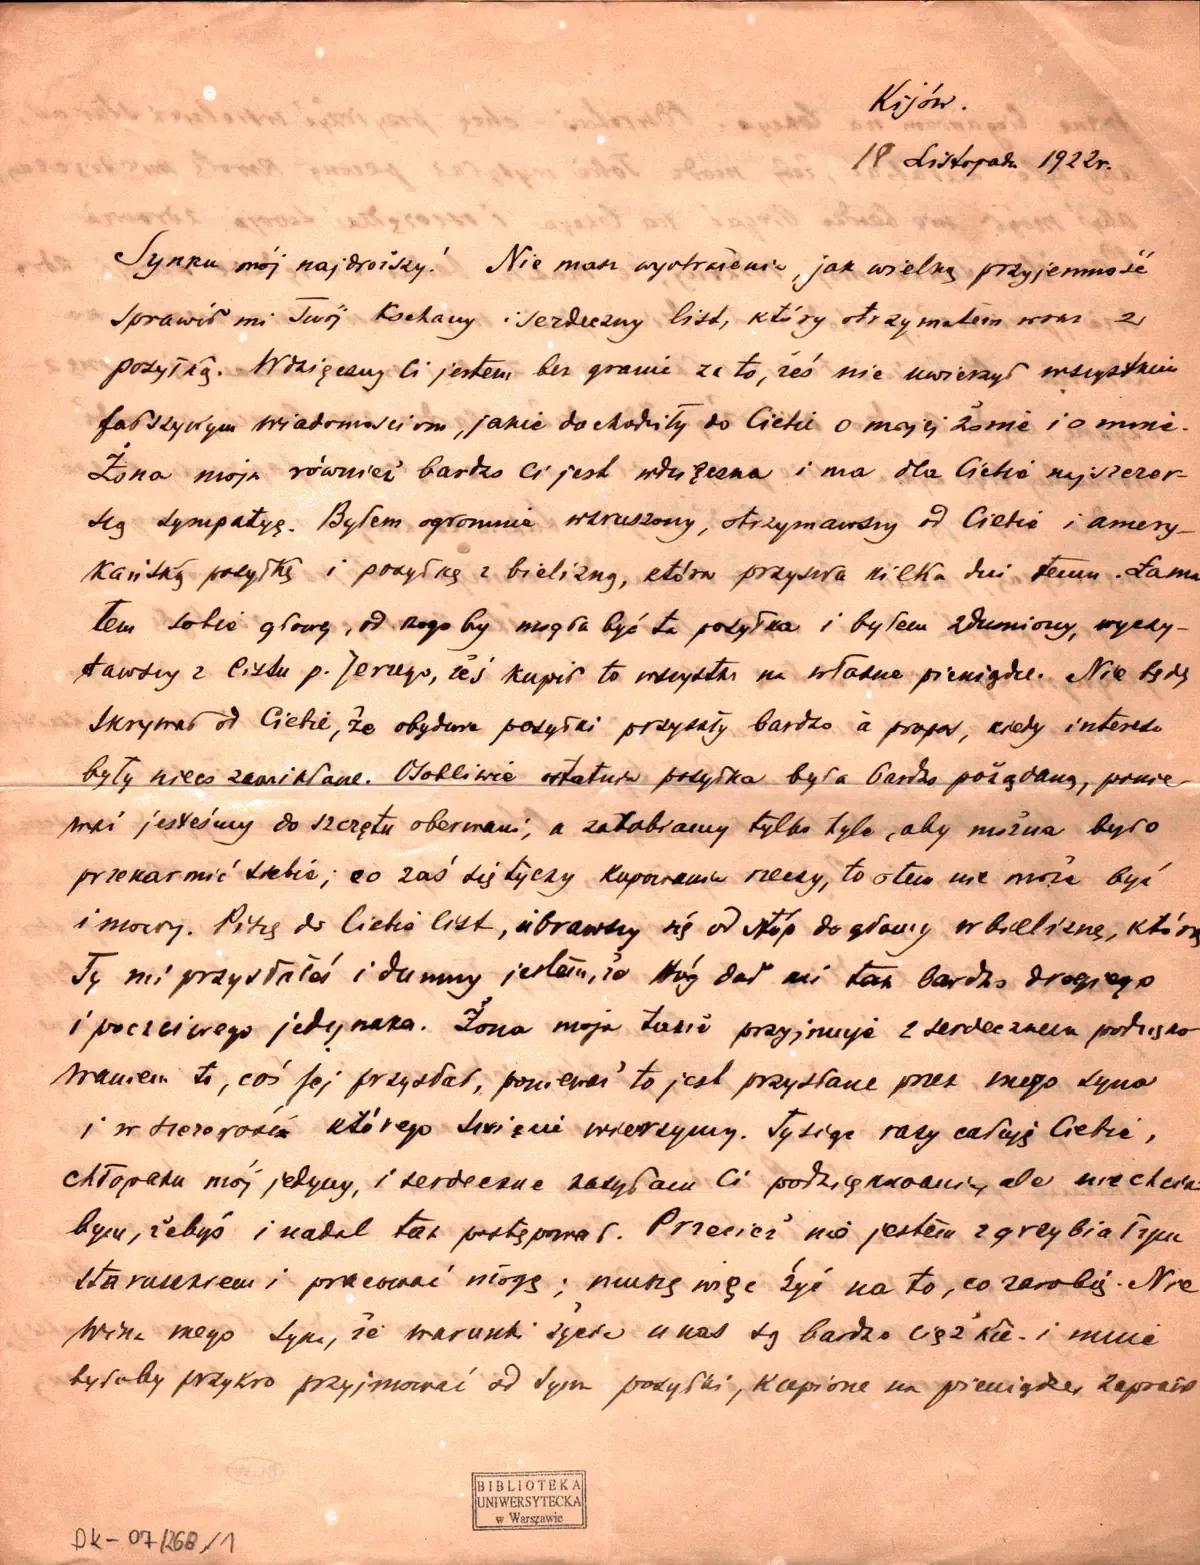 Kijów.
18 Listopada 1922r.
Synku mój najdroższy! Nie masz wyobrażenia, jak wielką przyjemność
sprawił mi Twój kochany i serdeczny list, który otrzymałem wraz z
posyłką. Wdzięczny Ci jestem bez granic za to, żeś nie uwierzył wszystkim
fałszywym wiadomościom, jakie dochodziły do Ciebie o mojej żonie i o mnie.
Żona moja również bardzo Ci jest wdzięczna i ma dla Ciebie najszczer-
szą sympatyę. Byłem ogromnie wzruszony, otrzymawszy od Ciebie i amery-
kańską posyłkę i posyłkę z bielizną, która przyszła kilka dni temu. Łama
łem sobie głowę, od kogo by mogła być ta posyłka i byłem zdumiony, wyczy-
tawszy z listu p. Jerzego, żeś kupił to wszystko na własne pieniądze. Nie będę
skrywał od Ciebie, że obydwie posyłki przyszły bardzo à propos, kiedy interesa
były nieco zawikłane. Osobliwie ostatnia posyłka była bardzo pożądaną, ponie-
waż jesteśmy do szczętu oberwani, a zarabiamy tylko tyle, aby można było
przekarmić siebie; co zaś się tyczy kupowania rzeczy, to o tem nie może być
i mowy. Piszę do Ciebie list, ubrawszy się od stóp do głowy w bieliznę, którą
Ty mi przysłałeś i dumny jestem, że Bóg dał mi tak bardzo drogiego
i poczciwego jedynaka. Żona moja także przyjmuje z serdecznem podzięko
waniem to, coś jej przysłał, ponieważ to jest przysłane przez mego syna
i w szczerość którego święcie wierzymy. Tysiąc razy całuję Ciebie,
chłopaku mój jedyny, i serdeczne zasyłam Ci podziękowanie, ale nie chciał
bym, żebyś i nadal tak postępował. Przecież nie jestem zgrzybiałym
staruszkiem i pracować mogę; muszę więc żyć na to, co zarobię. Nie
wina mego syna, że warunki życia u nas są bardzo ciężkie i mnie
byłoby przykro przyjmować od syna posyłki, kupione na pieniądze, zapraco
BIBLIOTEKA
UNIWERSYTECKA
w Warszawie
DK-07/268/1